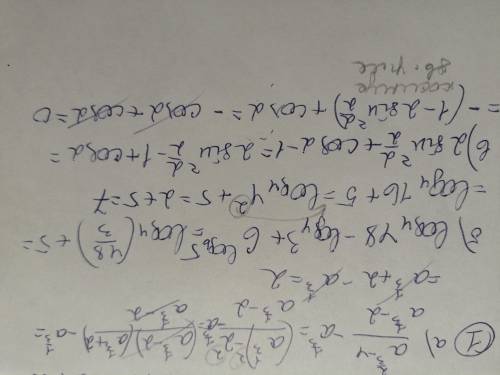 ① а) (a^{2/3} - 4)/(a^{1/3} - 2) - a^{1/3} = ((a^{1/3})^2 - 2^2)/(a^{1/3} - 2) - a^{1/3} = ((a^{1/3} - 2)(a^{1/3} + 2))/(a^{1/3} - 2) - a^{1/3} =
= a^{1/3} + 2 - a^{1/3} = 2
б) log₄ 48 - log₄ 3 + 6^{log₆ 5} = log₄ (48/3) + 5 =
= log₄ 16 + 5 = log₄ 4² + 5 = 2 + 5 = 7
в) 2 sin² α/2 + cos α - 1 = 2 sin² α/2 - 1 + cos α =
= -(1 - 2 sin² α/2) + cos α = - cos α + cos α = 0
косинус
дв. угла